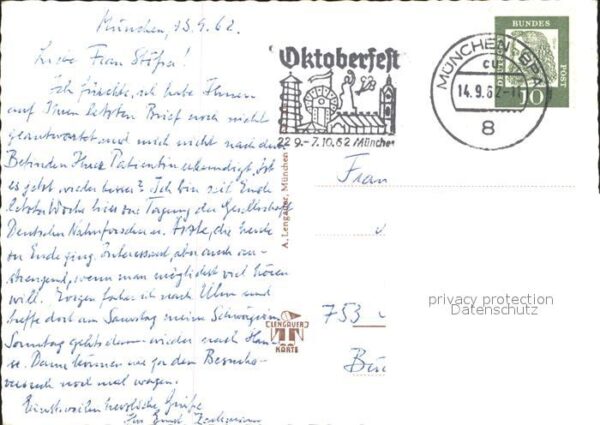 München, 13.9.62.
Liebe Frau
Ich fürchte, ich habe Ihnen
auf Ihren letzten Brief noch nicht
geantwortet und mich nicht nach dem
Befinden Ihrer Patientin erkundigt. Ist
es jetzt wieder besser? Ich bin seit Ende
letzter Woche hier zur Tagung der Gesellschaft
Deutscher Naturforscher u. Ärzte, die heute
zu Ende ging. Interessant, aber auch an-
strengend, wenn man möglichst viel hören
will. Morgen fahre ich nach Ulm und
treffe dort am Samstag meine Schwägerin
Sonntag gehts dann wieder nach
u. Dann können wir ja den Besuchs-
versuch noch mal wagen.
Einstweilen herzliche Grüße
Ihr
Oktoberfest
22.9.-7.10.62 München
MÜNCHEN BPA
cu
14.9.62-11
8
DEUTSCHE
BUNDES
POST
10
A. Lengauer, München
LENGAUER
KARTE
Frau
753
Bün
privacy protection
Datenschutz